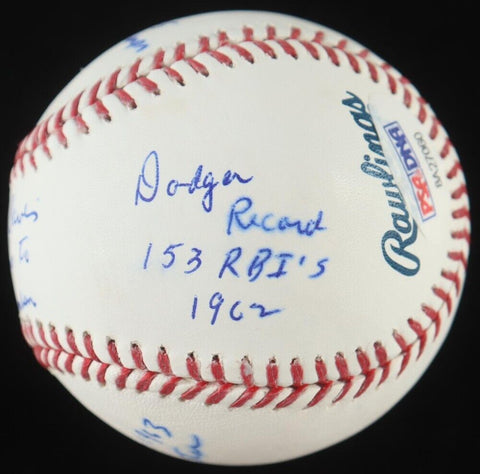 Dodger
Record
153 RBI's
1962
Rawlings
PSA/DNA
BA27060
to